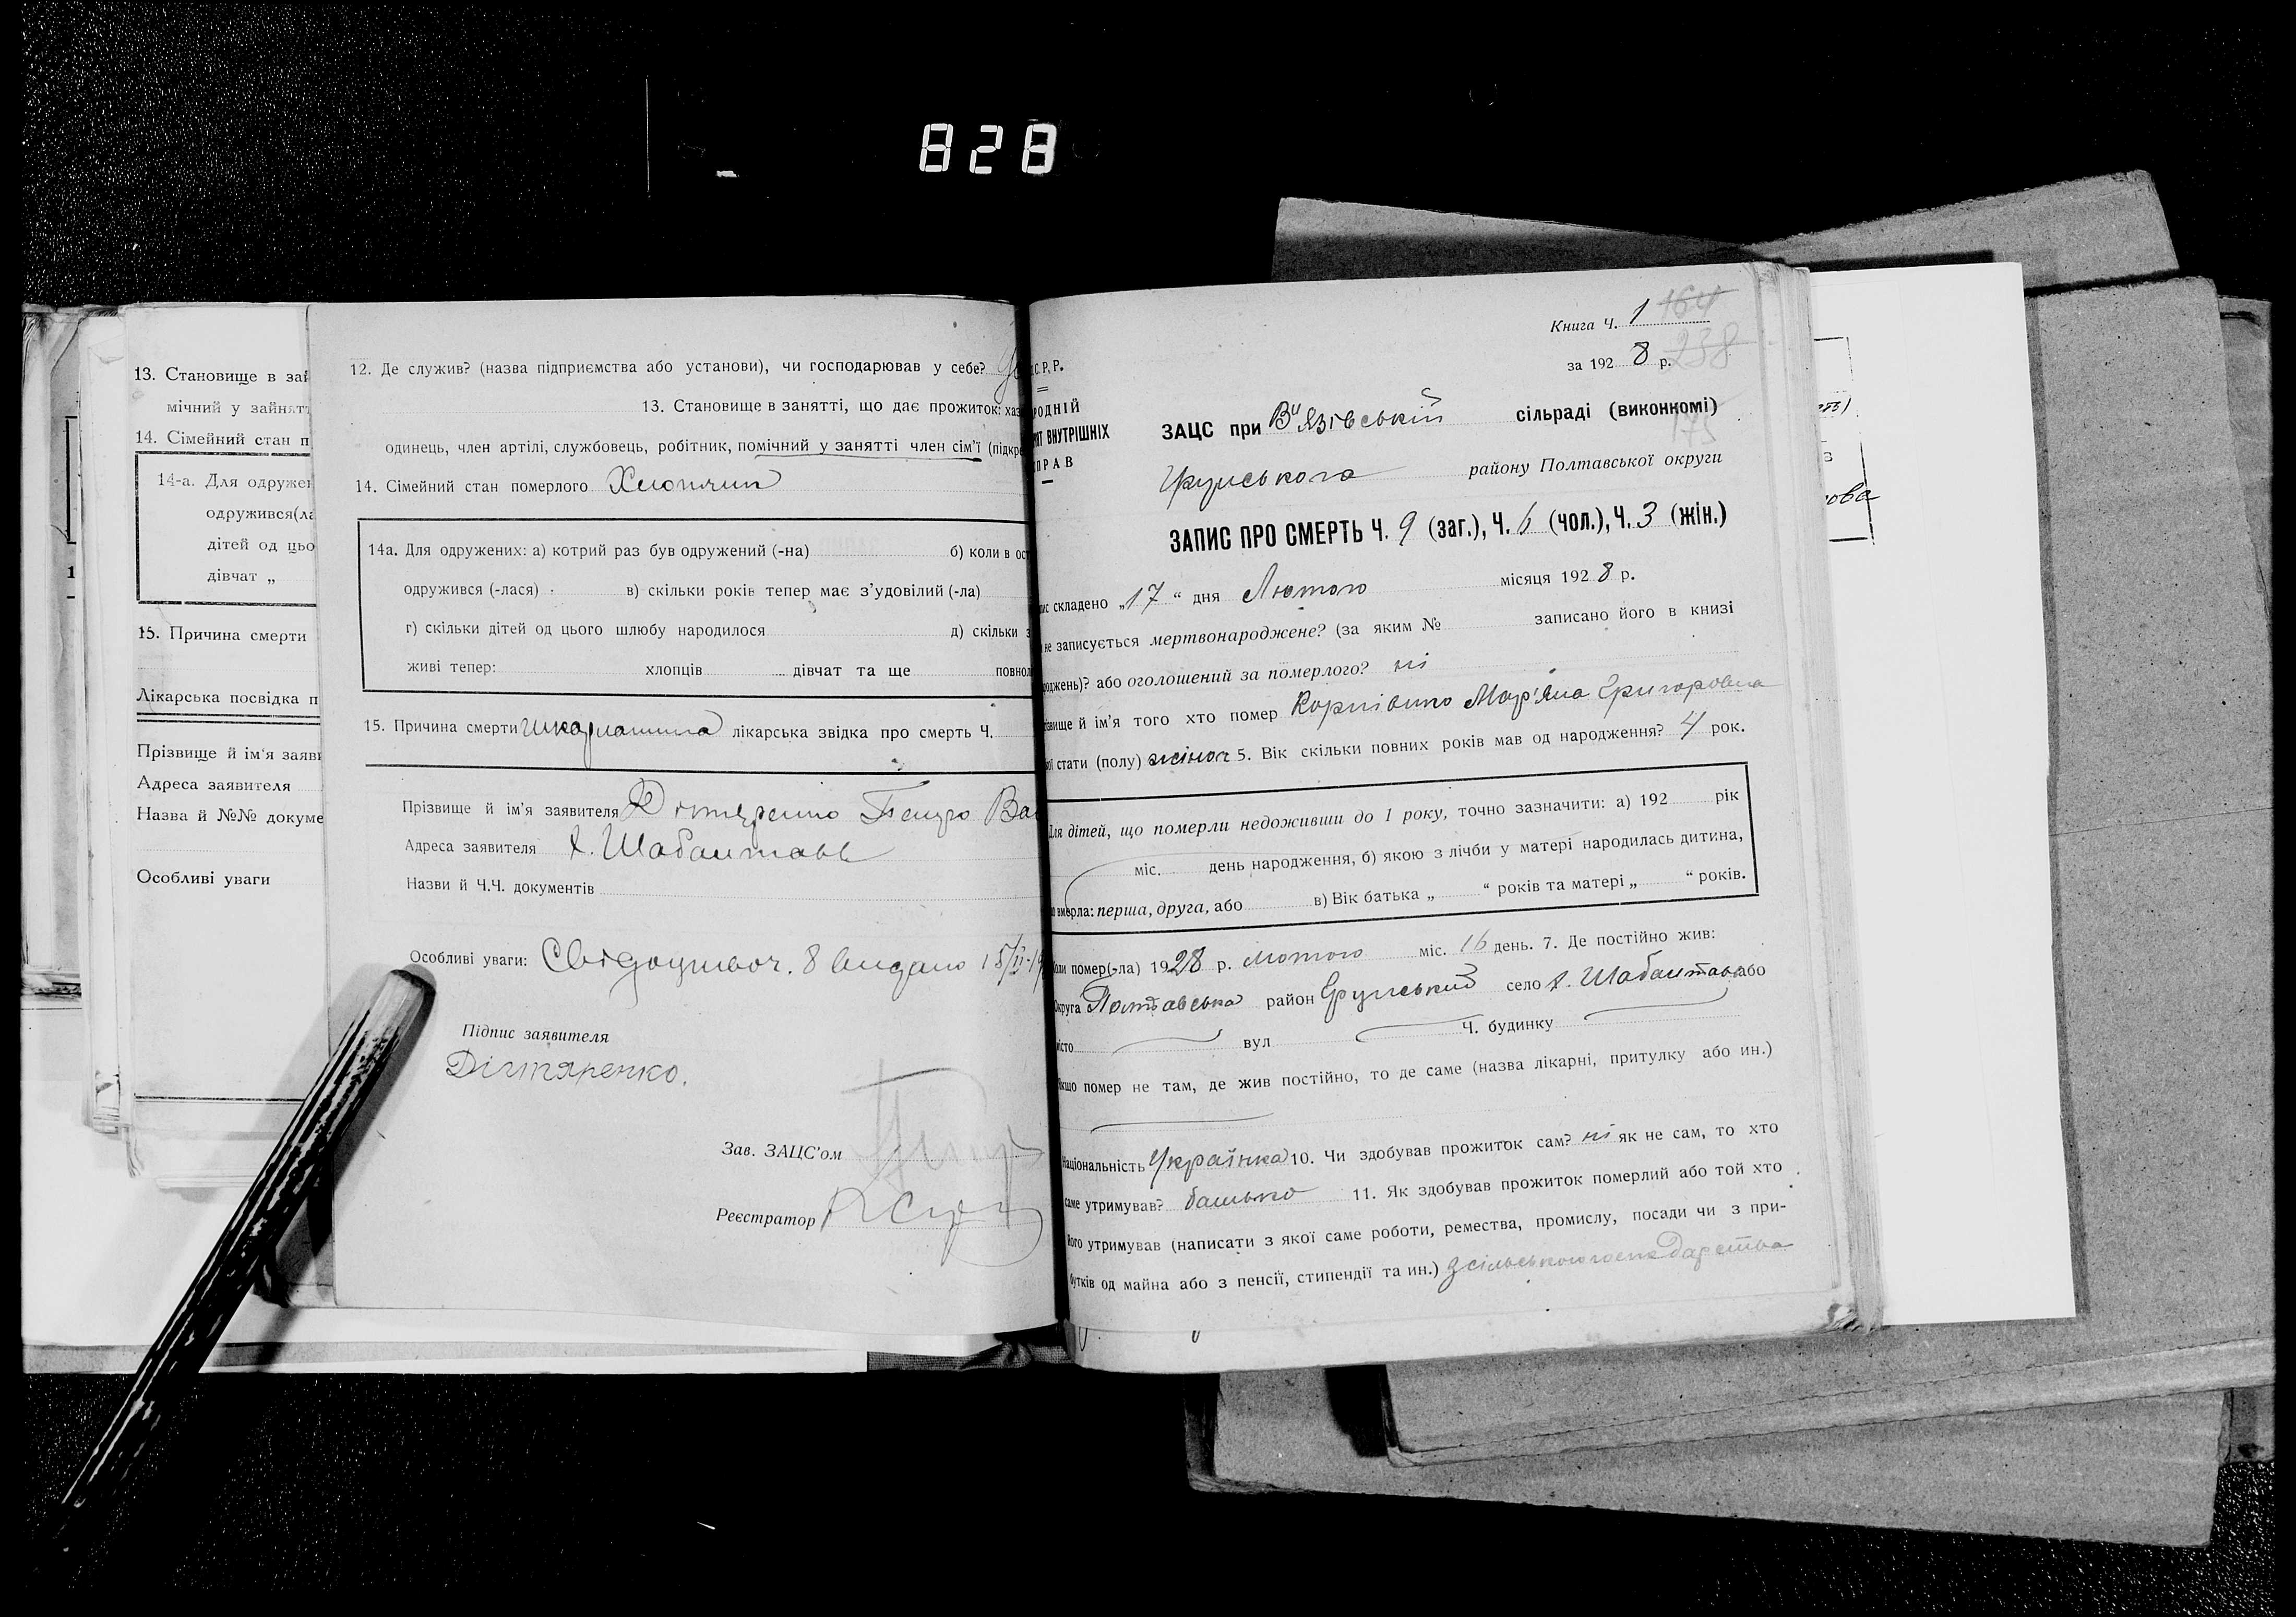 828
13. Становище в зай
мічний у занятт
14. Сімейний стан п
14-а. Для одружен
одружився(ла
дітей од цьо
дівчат „
15. Причина смерти
Лікарська посвідка п
Прізвище й ім'я заяви
Адреса заявителя
Назва й №№ докуме
Особливі уваги
12. Де служив? (назва підприємства або установи), чи господарював у себе?
13. Становище в занятті, що дає прожиток: хаз
одинець, член артілі, службовець, робітник, помічний у занятті член сім'ї (підкре
14. Сімейний стан померлого Хлопчик
14а. Для одружених: а) котрий раз був одружений (-на) б) коли в ост
одружився (-лася) в) скільки років тепер має з'удовілий (-ла)
г) скільки дітей од цього шлюбу народилося д) скільки з
живі тепер: хлопців дівчат та ще повнол
15. Причина смерти шкарлатина лікарська звідка про смерть Ч.
Прізвище й ім'я заявителя Дігтяренко Петро Ва
Адреса заявителя х. Шабалтаєв
Назви й Ч.Ч. документів
Особливі уваги: Свідоцтво ч. 8 видано 15/II-19
Підпис заявителя
Дігтяренко.
Зав. ЗАЦС'ом
Реєстратор
Книга Ч. 1 164
за 192 8 р. 238
С.Р.Р.
РОДНІЙ
ІЯТ ВНУТРІШНІХ
ПРАВ
ЗАЦС при В'язівській сільраді (виконкомі)
175
Грунського району Полтавської округи
ЗАПИС ПРО СМЕРТЬ Ч. 9 (заг.), Ч. 6 (чол.), Ч. 3 (жін.)
ис складено „17“ дня Лютого місяця 192 8 р.
не записується мертвонароджене? (за яким № записано його в книзі
роджень)? або оголошений за померлого? ні
ізвище й ім'я того хто помер Корнієнко Мар'яна Григоровна
ої стати (полу) жіноч 5. Вік скільки повних років мав од народження? 4 рок.
Для дітей, що померли недоживши до 1 року, точно зазначити: а) 192 рік
міс. день народження, б) якою з лічби у матері народилась дитина,
о вмерла: перша, друга, або в) Вік батька „ “ років та матері „ “ років.
оли помер(-ла) 1928 р. лютого міс. 16 день. 7. Де постійно жив:
Округа Полтавська район Грунський село х. Шабалтаєв або
місто вул Ч. будинку
якщо помер не там, де жив постійно, то де саме (назва лікарні, притулку або ин.)
Національність Українка 10. Чи здобував прожиток сам? ні як не сам, то хто
саме утримував? батько 11. Як здобував прожиток померлий або той хто
його утримував (написати з якої саме роботи, ремества, промислу, посади чи з при-
бутків од майна або з пенсії, стипендії та ин.) з сільського господарства